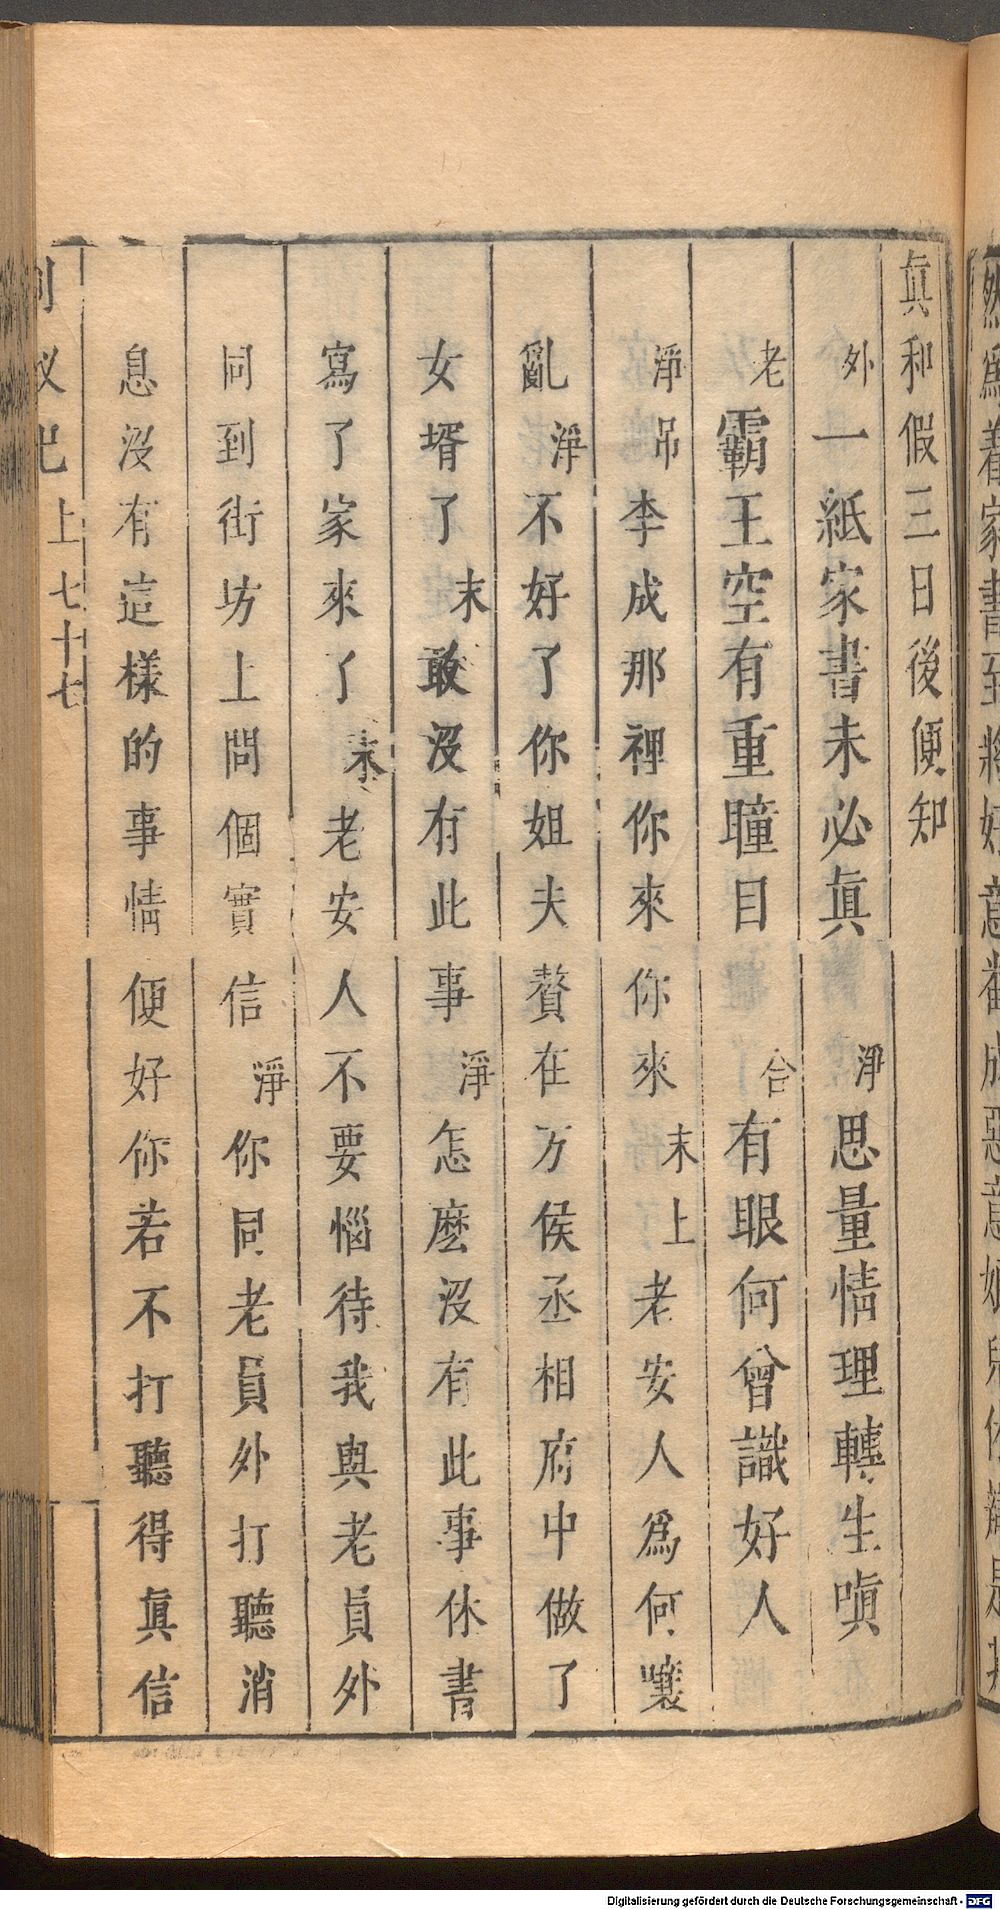 然爲着家書至將好意番成惡意
眞和假三日後便知
外一紙家書未必眞 淨思量情理轉生嗔
老霸王空有重瞳目 合有眼何曾識好人
淨吊李成那裡你來你來末上老安人爲何嚷
亂淨不好了你姐夫贅在万侯丞相府中做了
女壻了末敢沒有此事淨怎麽沒有此事休書
寫了家來了末老安人不要惱待我與老員外
同到街坊上問個實信淨你同老員外打聽消
息沒有這樣的事情便好你若不打聽得眞信
上 七十七
Digitalisierung gefördert durch die Deutsche Forschungsgemeinschaft - DFG